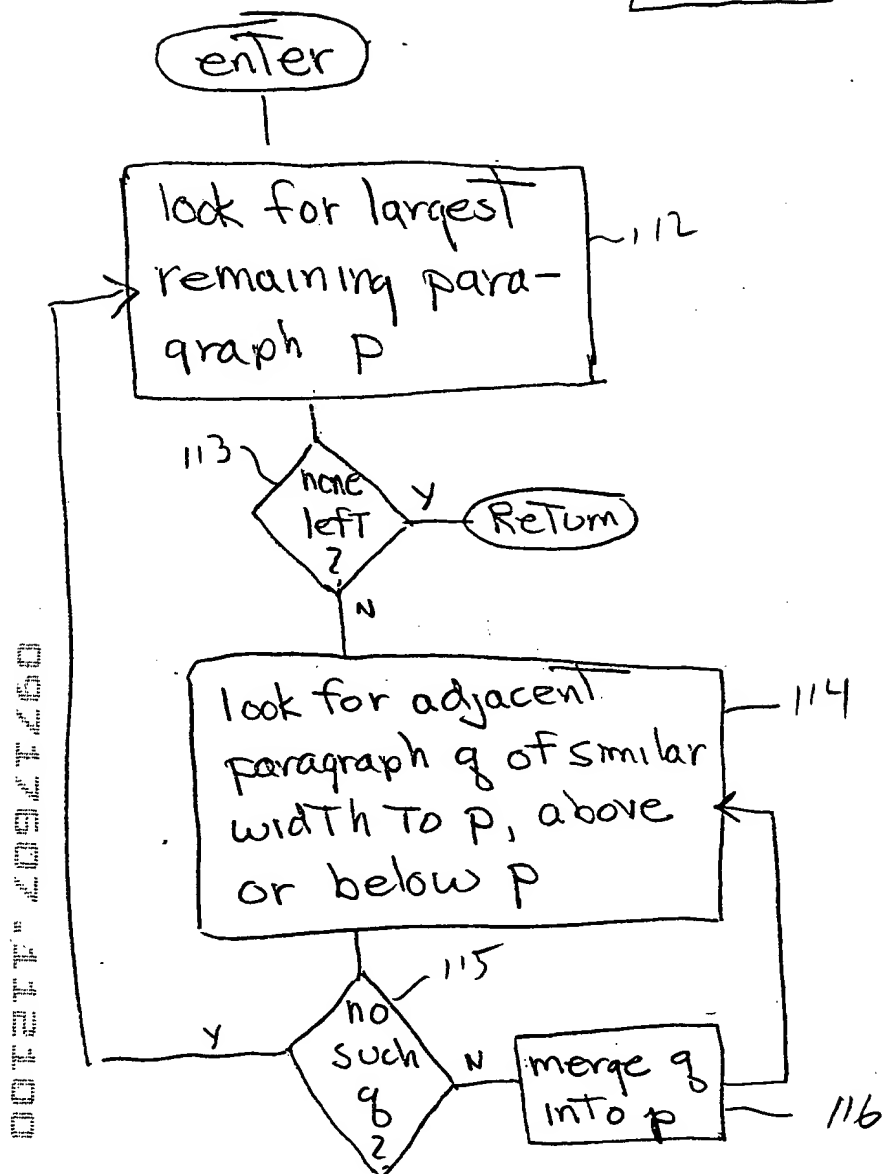 enTer
look for largest
remaining para-
graph p
112
113
none
left
?
Y
ReTurn
N
look for adjacent
paragraph q of similar
width To p, above
or below p
114
115
no
such
q
?
Y
N
merge q
inTo p
116
09717607.112100